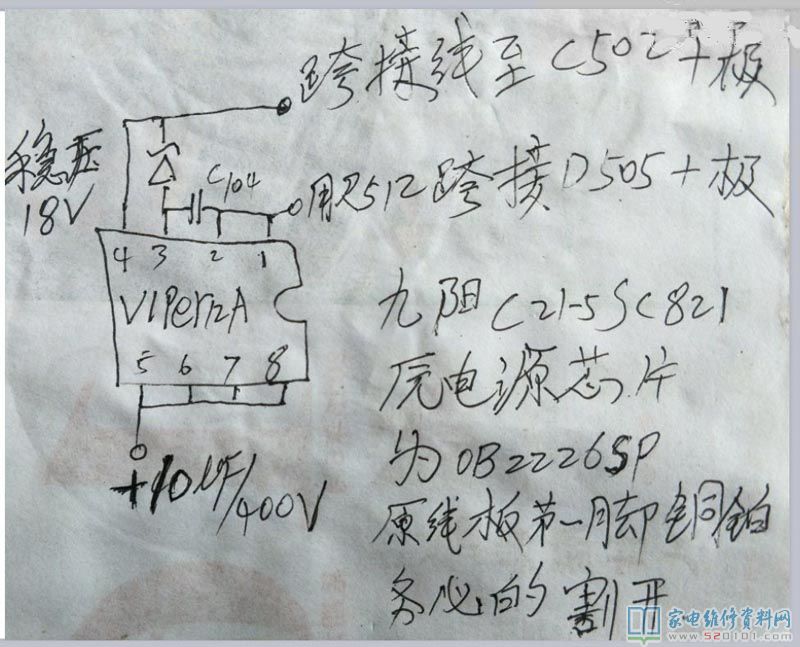 跨接线至C502+极
稳压
18V
C104
用R512跨接D505+极
4 3 2 1
VIPer12A
5 6 7 8
+10UF/400V
九阳C21-5SC821
原电源芯片
为OB2226SP
原线板第一脚铜铂
务必的割开
家电维修资料网
www.520101.com